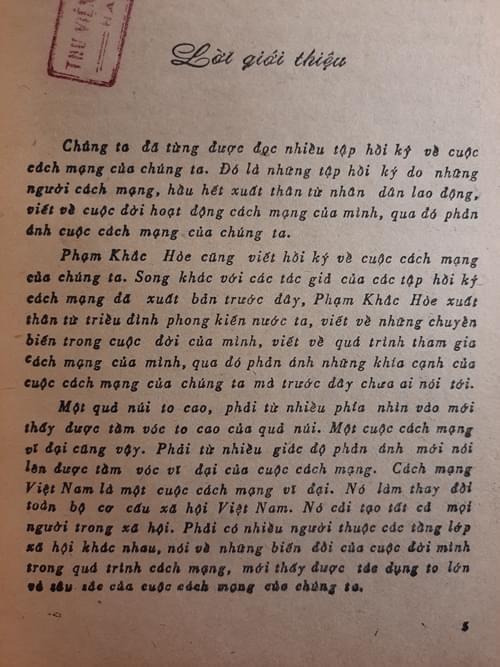 THƯ VIỆN
HA
Lời giới thiệu
Chúng ta đã từng được đọc nhiều tập hồi ký về cuộc
cách mạng của chúng ta. Đó là những tập hồi ký do những
người cách mạng, hầu hết xuất thân từ nhân dân lao động,
viết về cuộc đời hoạt động cách mạng của mình, qua đó phản
ánh cuộc cách mạng của chúng ta.
Phạm Khắc Hòe cũng viết hồi ký về cuộc cách mạng
của chúng ta. Song khác với các tác giả của các tập hồi ký
cách mạng đã xuất bản trước đây, Phạm Khắc Hòe xuất
thân từ triều đình phong kiến nước ta, viết về những chuyển
biến trong cuộc đời của mình, viết về quá trình tham gia
cách mạng của mình, qua đó phản ánh những khía cạnh của
cuộc cách mạng của chúng ta mà trước đây chưa ai nói tới.
Một quả núi to cao, phải từ nhiều phía nhìn vào mới
thấy được tầm vóc to cao của quả núi. Một cuộc cách mạng
vĩ đại cũng vậy. Phải từ nhiều giác độ phản ánh mới nói
lên được tầm vóc vĩ đại của cuộc cách mạng. Cách mạng
Việt Nam là một cuộc cách mạng vĩ đại. Nó làm thay đổi
toàn bộ cơ cấu xã hội Việt Nam. Nó cải tạo tất cả mọi
người trong xã hội. Phải có nhiều người thuộc các tầng lớp
xã hội khác nhau, nói về những biến đổi của cuộc đời mình
trong quá trình cách mạng, mới thấy được tác dụng to lớn
và sâu sắc của cuộc cách mạng của chúng ta.
5